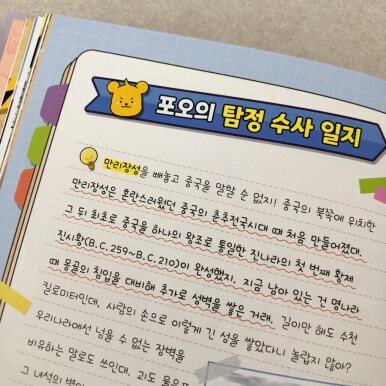 포오의 탐정 수사 일지
만리장성을 빼놓고 중국을 말할 순 없지! 중국의 북쪽에 위치한
만리장성은 혼란스러웠던 중국의 춘추전국시대 때 처음 만들어졌대.
그 뒤 최초로 중국을 하나의 왕조로 통일한 진나라의 첫 번째 황제
진시황(B.C.259~B.C.210)이 완성했지. 지금 남아 있는 건 명나라
때 몽골의 침입을 대비해 추가로 성벽을 쌓은 거래. 길이만 해도 수천
킬로미터인데, 사람의 손으로 이렇게 긴 성을 쌓았다니 놀랍지 않아?
우리나라에선 넘을 수 없는 장벽을
비유하는 말로도 쓰인대. 괴도
그 녀석의 벽이